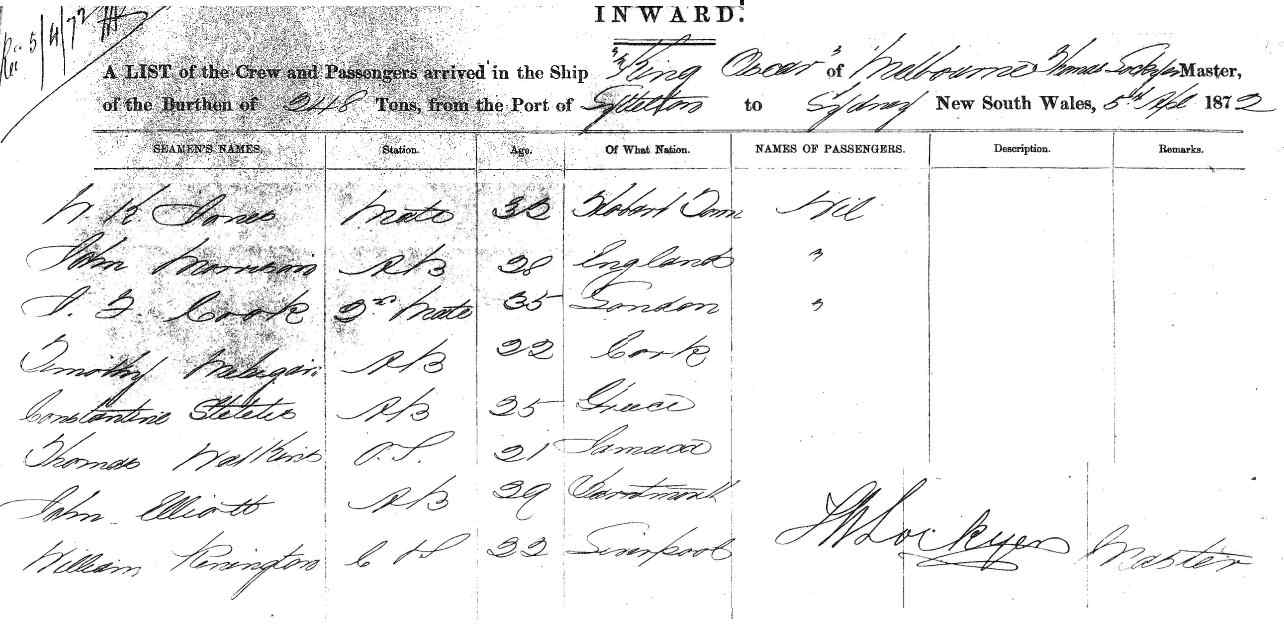 INWARD.
Rec 5/4/72
A LIST of the Crew and Passengers arrived in the Ship "King Oscar" of Melbourne Thomas Lockyer Master,
of the Burthen of 248 Tons, from the Port of Lyttelton to Sydney New South Wales, 5th Apl 1872
SEAMEN'S NAMES. Station. Age. Of What Nation. NAMES OF PASSENGERS. Description. Remarks.
Jones Mate 33 Hobart Town Nil
John Morrison AB 28 England "
Cook 2nd Mate 35 London "
Timothy AB 22 Cork
Constantine AB 25 Greece
Thomas Watkins O.S. 21 Jamaca
John Elliott AB 29
William Kenington 22 Liverpool
Lockyer Master